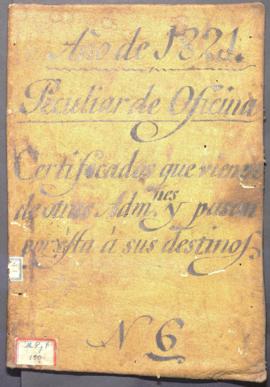 Año de 1821.
Peculiar de Oficina
Certificados que vienen
de otras Adm.nes y pasan
por ésta á sus destinos
N 6